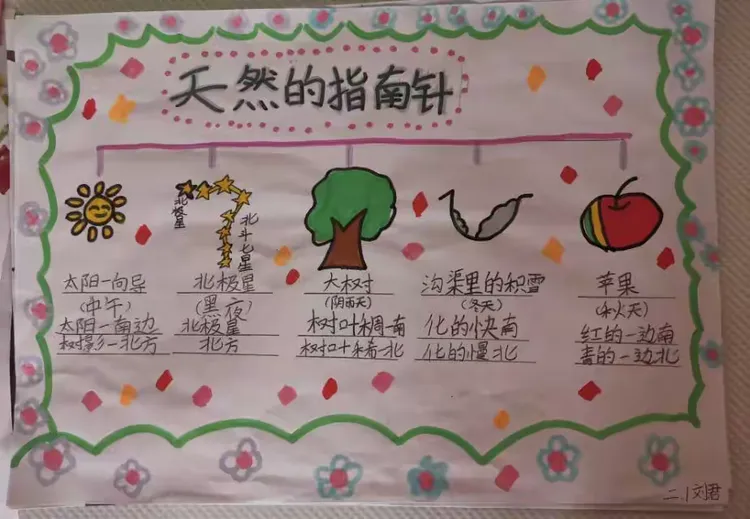 天然的指南针
北极星
北斗七星
太阳一向导
(中午)
太阳一南边
树影一北方
北极星
(黑夜)
北极星
北方
大树
(阴雨天)
树叶稠-南
树叶稀-北
沟渠里的积雪
(冬天)
化的快南
化的慢北
苹果
(秋天)
红的一边南
青的一边北
二.1刘君